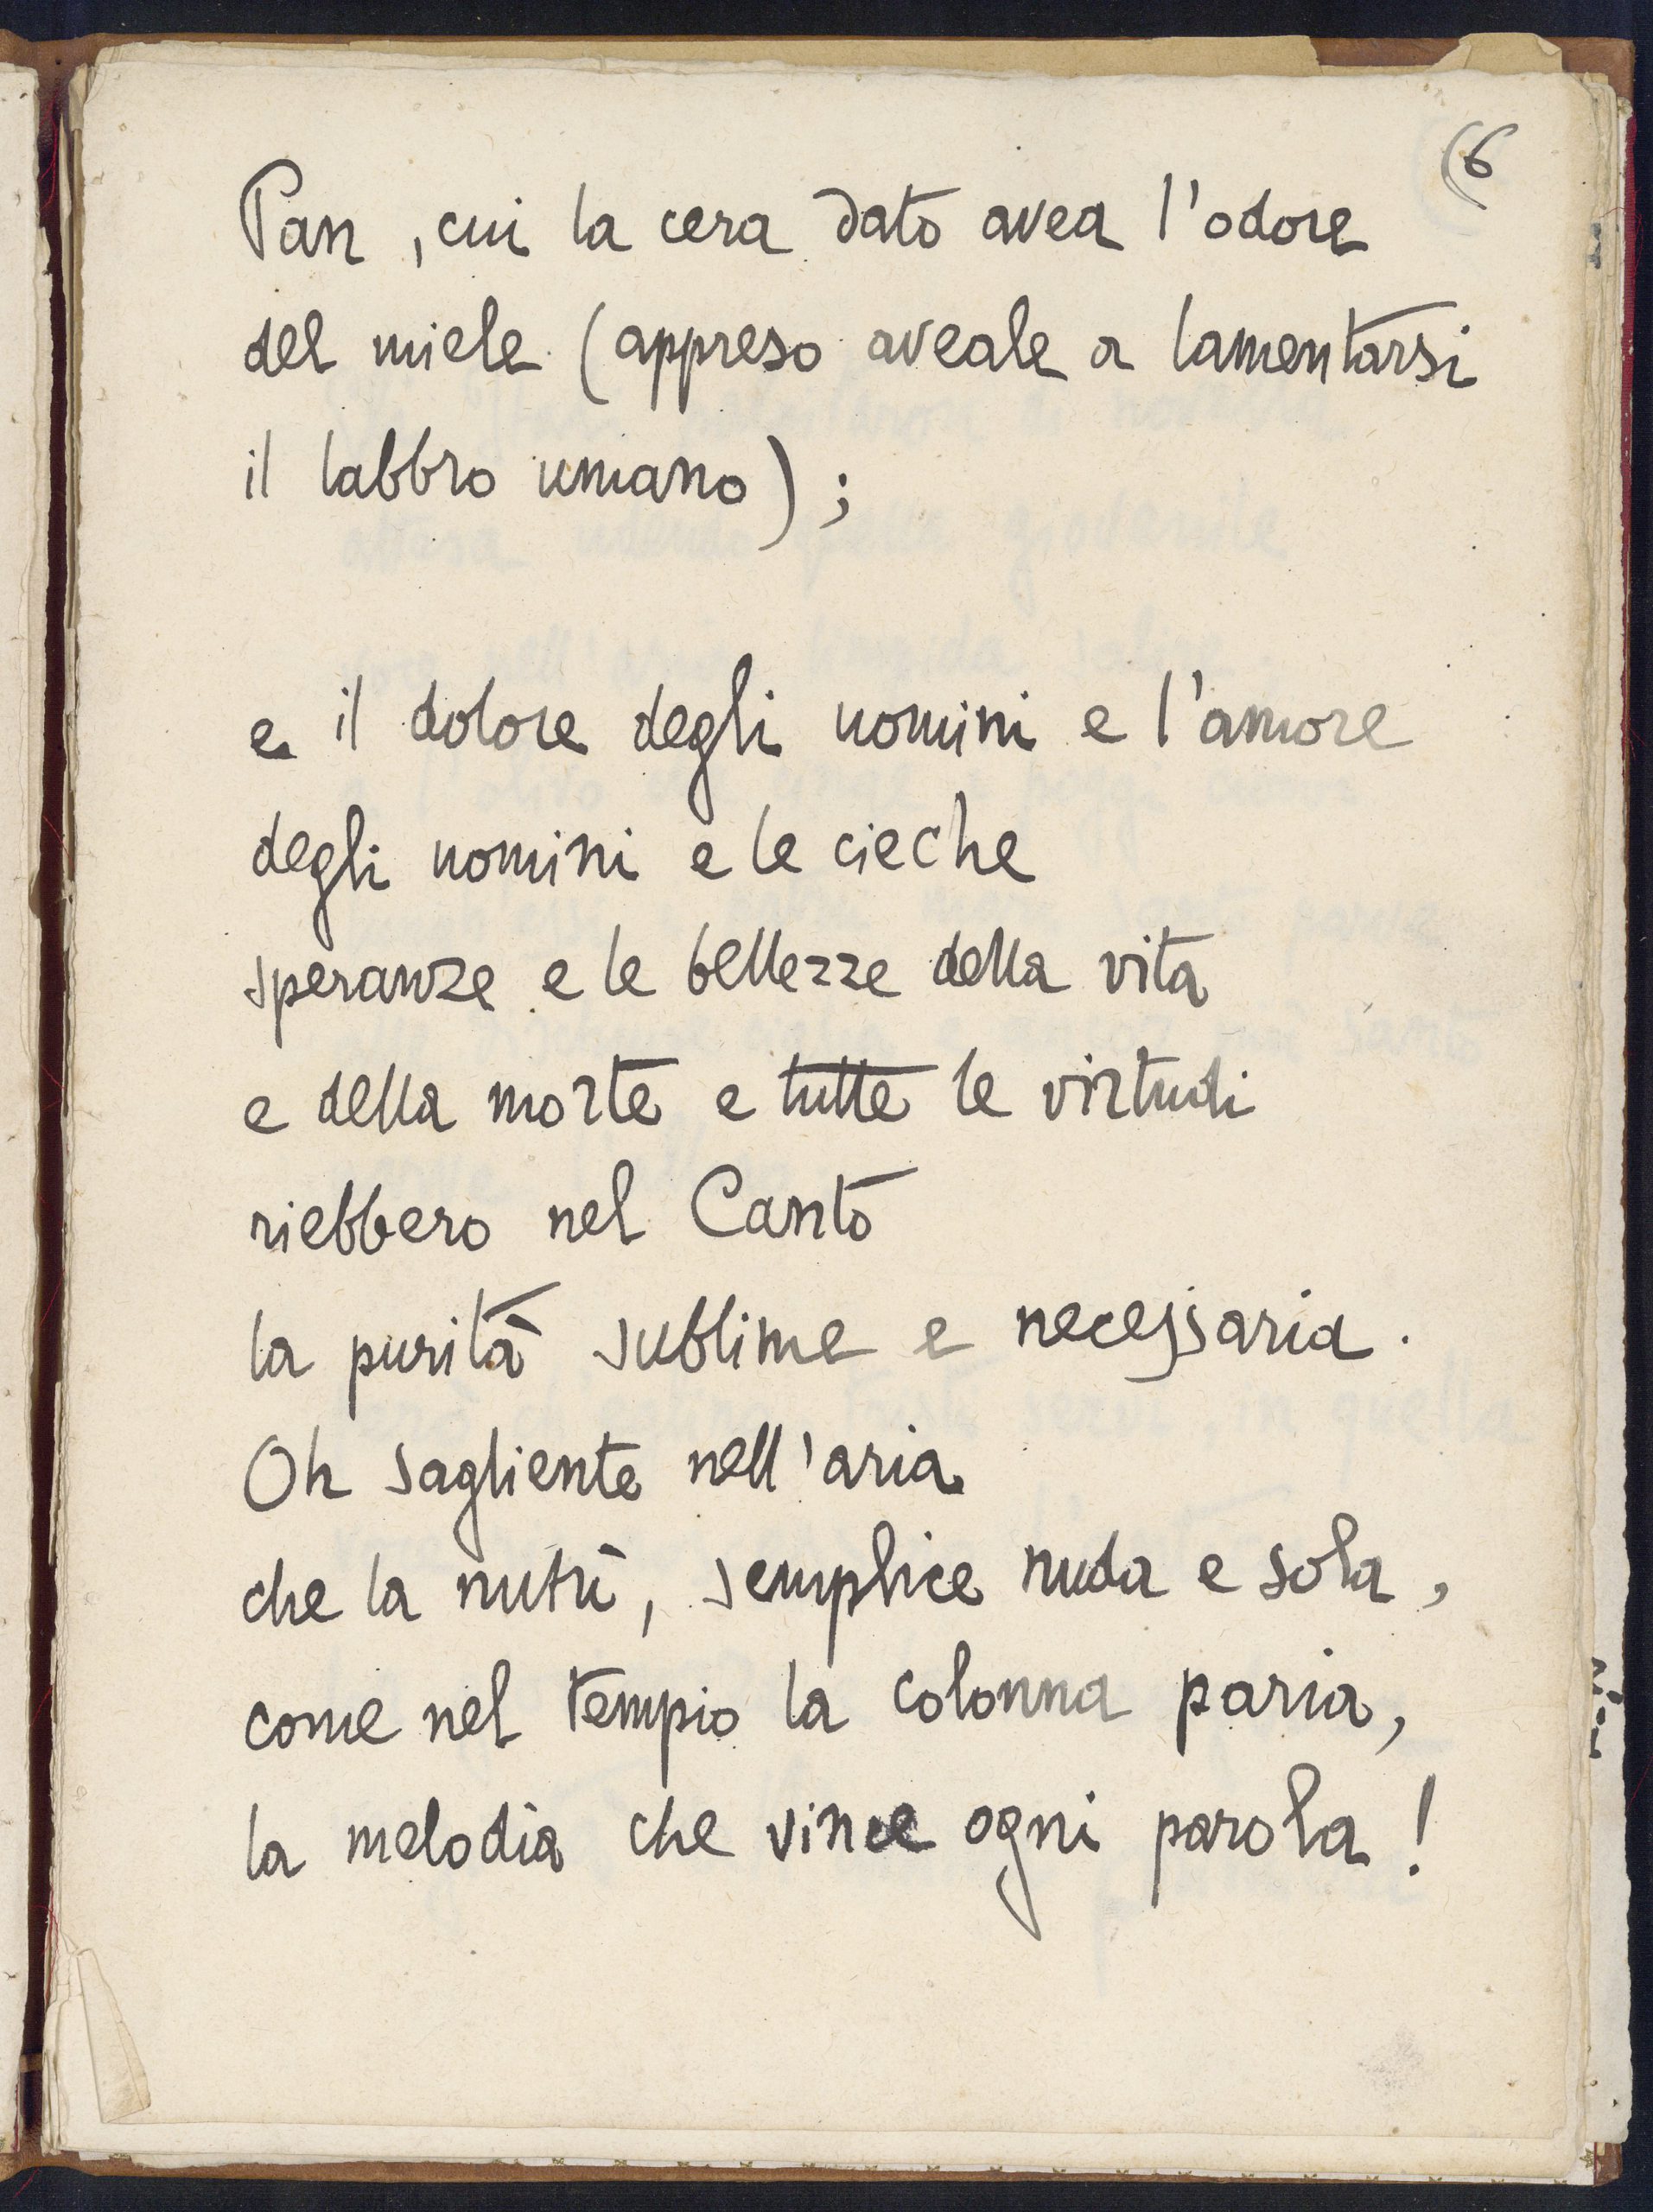 (6
Pan, cui la cera dato avea l'odore
del miele (appreso aveale a lamentarsi
il labbro umano);
e il dolore degli uomini e l'amore
degli uomini e le cieche
speranze e le bellezze della vita
e della morte e tutte le virtudi
riebbero nel Canto
la purità sublime e necessaria.
Oh sagliente nell'aria
che la nutrì, semplice nuda e sola,
come nel tempio la colonna paria,
la melodìa che vince ogni parola!